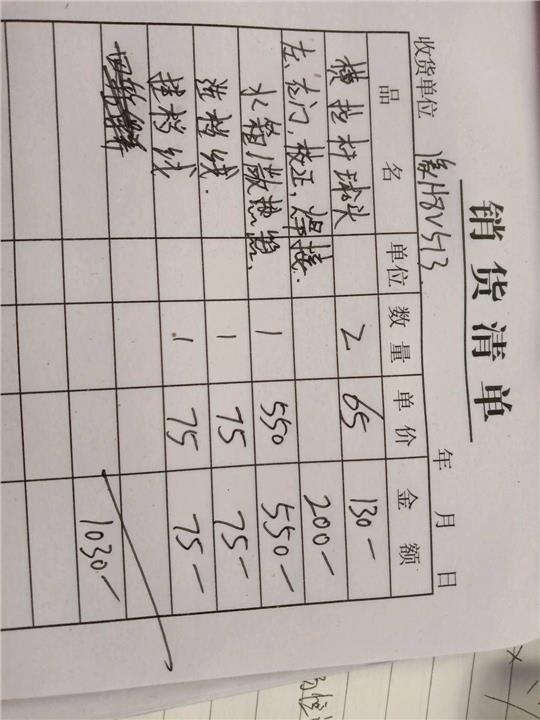 销货清单
收货单位 渝A8V513 年 月 日
品名 单位 数量 单价 金额
横拉杆球头 2 65 130-
左、右门,校正,焊接. 200-
水箱/散热器、 1 550 550-
选档线. 1 75 75-
挂档线 1 75 75-
1030-